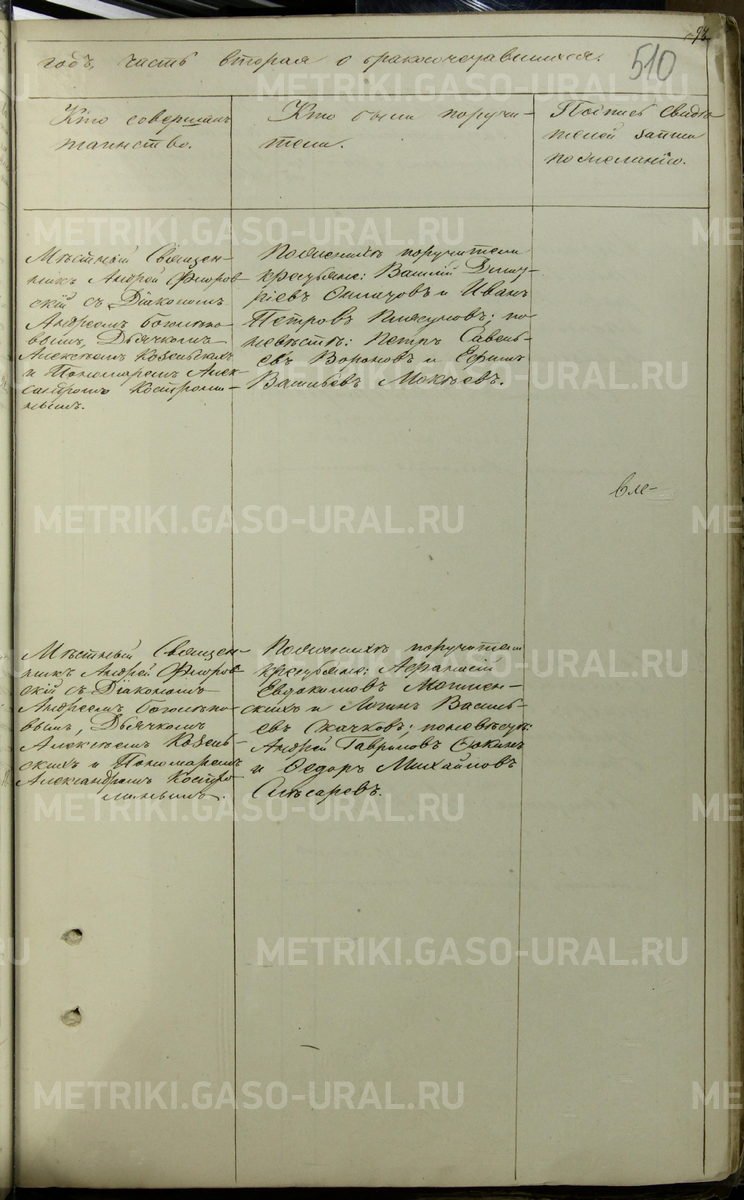 98
510
годъ, часть вторая о бракосочетавшихся.
Кто совершалъ
таинство.
Кто были поручи-
тели.
Подпись свидѣ-
телей записи
по желанію.
Мѣстный Священ-
никъ Андрей Флоров-
скій съ Діакономъ
Андреемъ Боголѣпо-
вымъ, Дьячкомъ
Алексѣемъ Козельскихъ
и Пономаремъ Алек-
сандромъ Костроми-
нымъ.
По женихѣ поручители
крестьяне: Василій Дмит-
ріевъ и Иванъ
Петровъ Плясуновъ; по
невѣстѣ: Петръ Савель-
евъ Вороновъ и Ефимъ
Васильевъ Мокѣевъ.
вле-
Мѣстный Священ-
никъ Андрей Флоров-
скій съ Діакономъ
Андреемъ Боголѣпо-
вымъ, Дьячкомъ
Алексѣемъ Козель-
скихъ и Пономаремъ
Александромъ Костро-
минымъ.
По женихѣ поручители
крестьяне: Афанасій
Евдокимовъ
и Логинъ Василь-
евъ Скачковъ; по невѣстѣ:
Андрей Гавриловъ Сукинъ
и Ѳедоръ Михайловъ
Слѣсаревъ.
METRIKI.GASO-URAL.RU